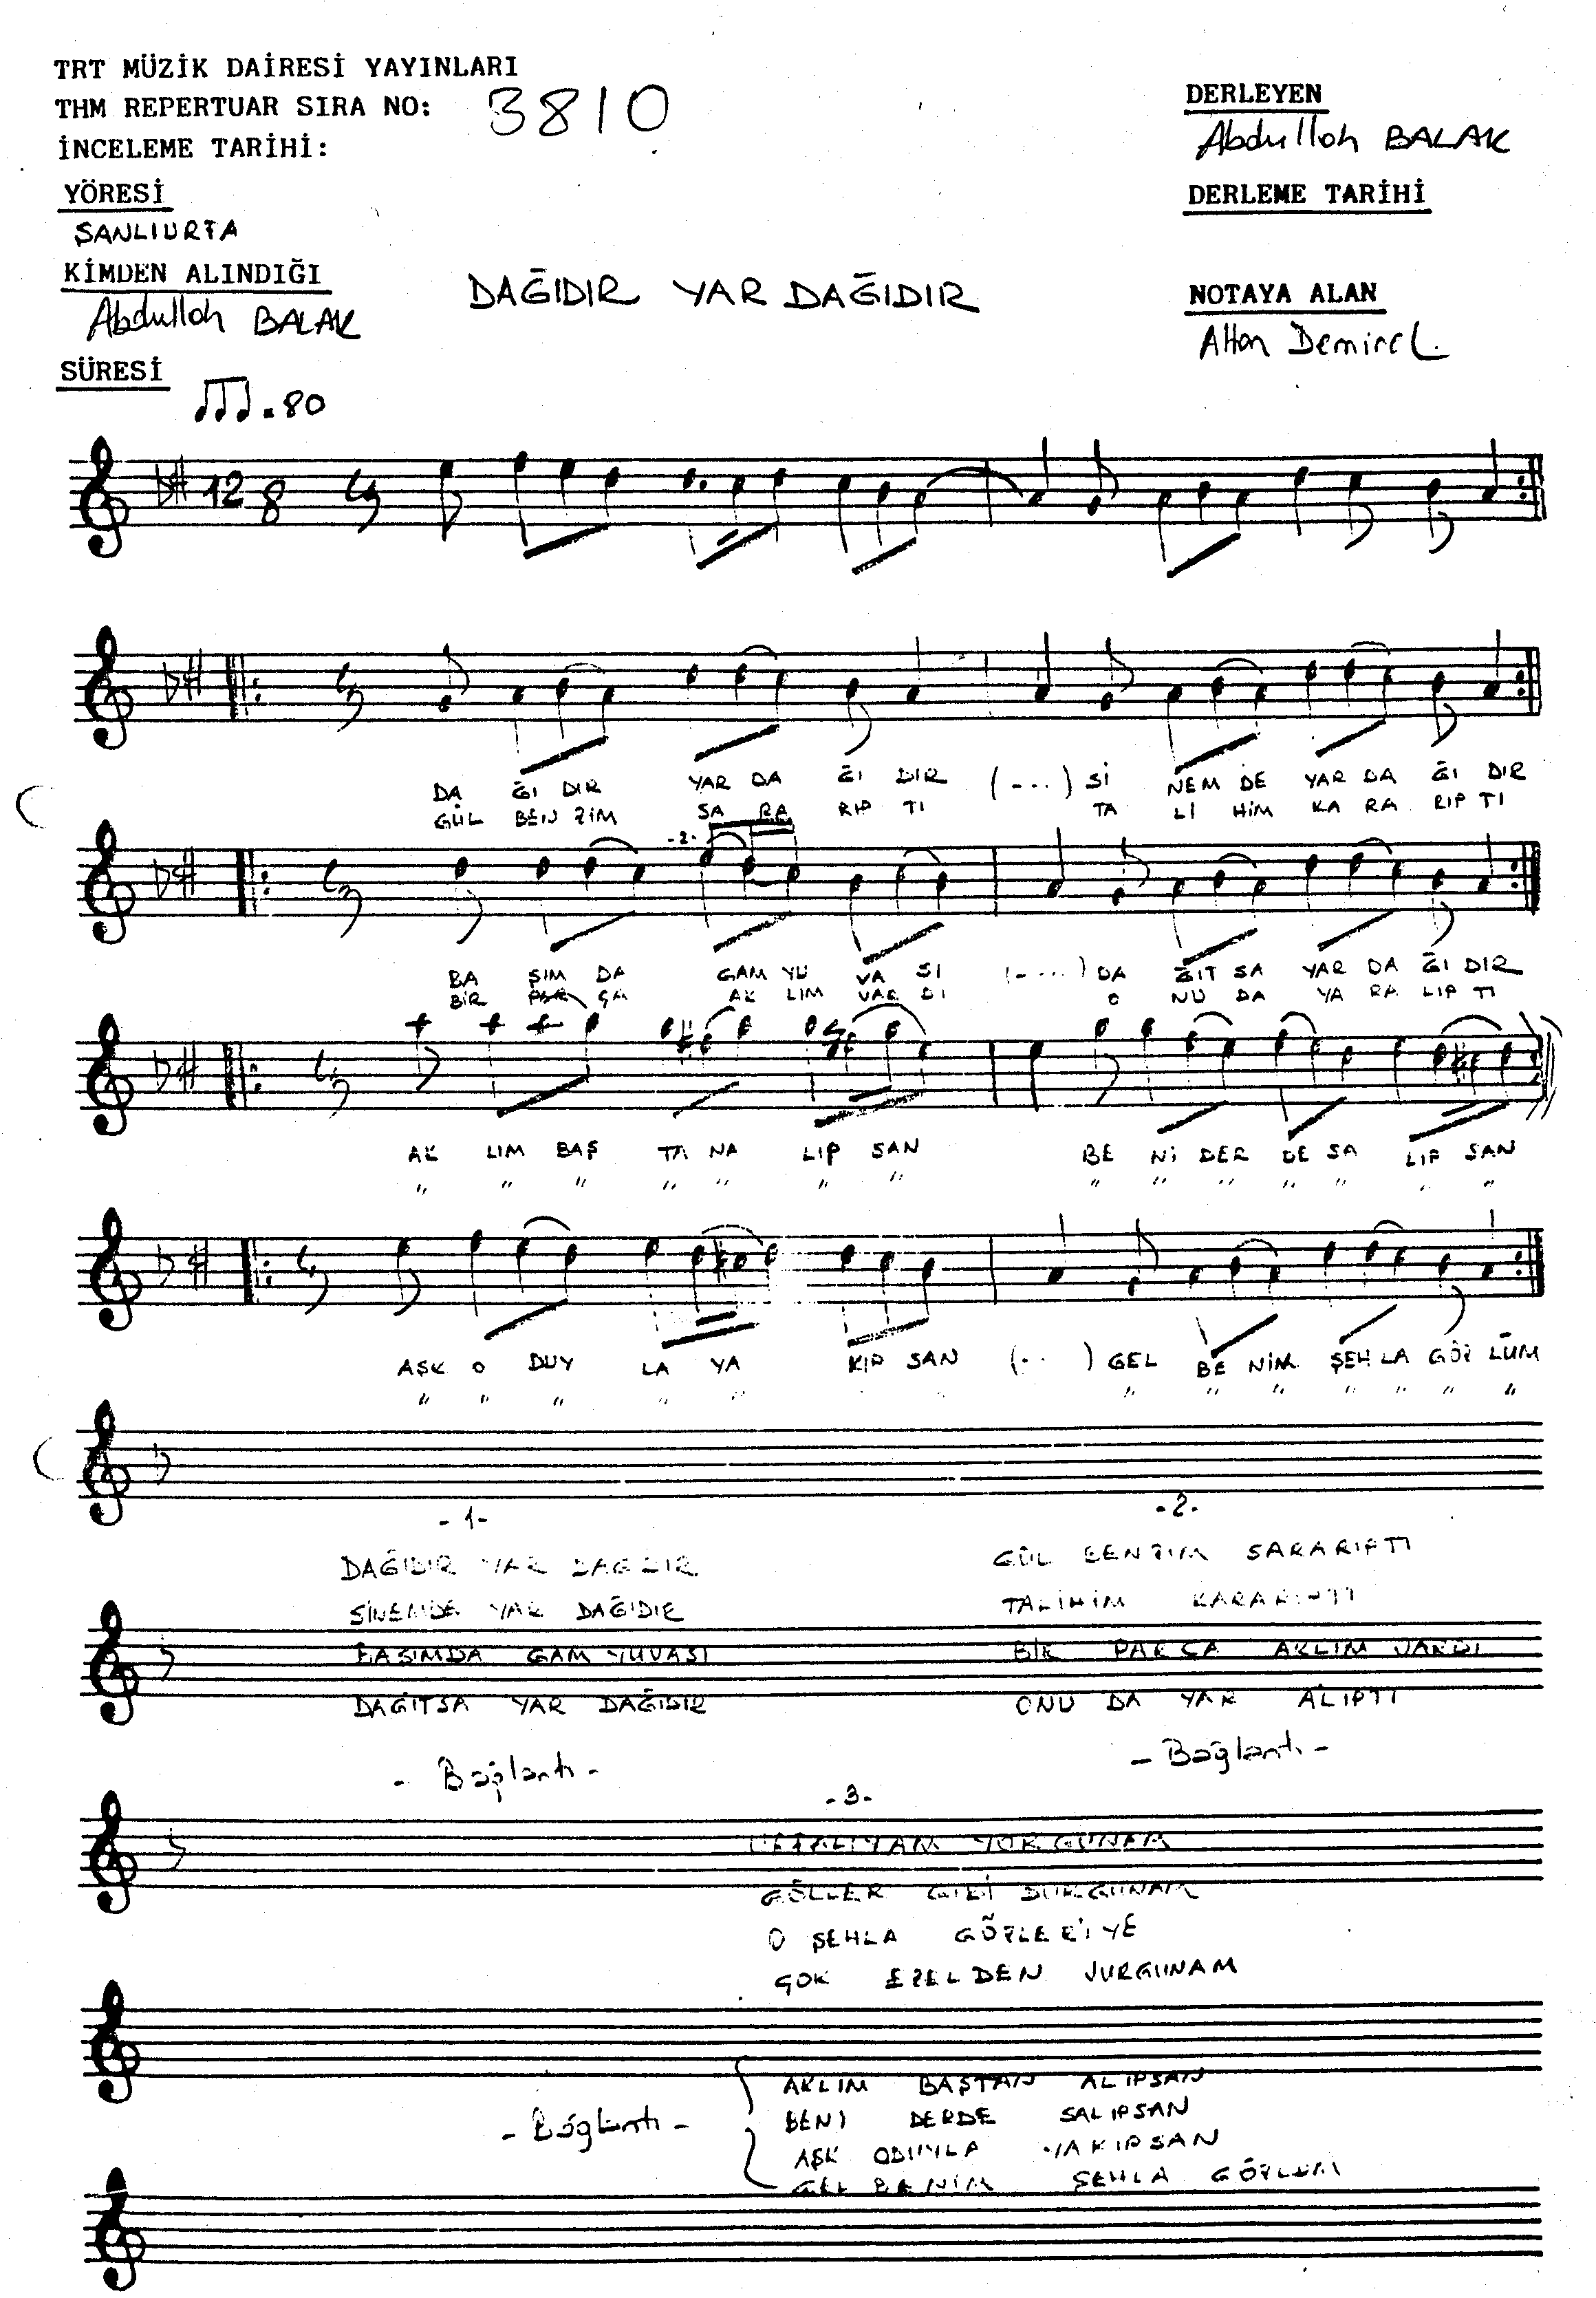 TRT MÜZİK DAİRESİ YAYINLARI
THM REPERTUAR SIRA NO: 3810
İNCELEME TARİHİ:
YÖRESİ
ŞANLIURFA
KİMDEN ALINDIĞI
Abdullah BALAK
SÜRESİ
DERLEYEN
Abdullah BALAK
DERLEME TARİHİ
NOTAYA ALAN
Altan Demirel.
DAĞIDIR YAR DAĞIDIR
= 80
12 8
DA ĞI DIR YAR DA ĞI DIR (---) Sİ NEM DE YAR DA ĞI DIR
GÜL BEN ZİM SA RA RIP TI TA Lİ HİM KA RA RIP TI
-2-
BA ŞIM DA GAM YU VA SI (----) DA ĞIT SA YAR DA ĞI DIR
BİR PAR ÇA AK LIM VAR DI O NU DA YA RA LIP TI
AK LIM BAŞ TA NA LIP SAN BE Nİ DER DE SA LIP SAN
" " " " " " " " " " " " " "
AŞK O DUY LA YA KIP SAN (-- ) GEL BE NİM ŞEH LA GÖZ LÜM
" " " " " " " " " " " "
-1-
DAĞIDIR YAR DAĞIDIR
SİNEMDE YAR DAĞIDIR
BAŞIMDA GAM YUVASI
DAĞITSA YAR DAĞIDIR
- Bağlantı -
-2-
GÜL BENZİM SARARIPTI
TALİHİM KARARIPTI
BİR PARÇA AKLIM VARDI
ONU DA YAR ALIPTI
- Bağlantı -
-3-
YORGUNAM
GÖLLER GİBİ DURGUNAM
O ŞEHLA GÖZLERİYE
ÇOK EZELDEN VURGUNAM
- Bağlantı -
AKLIM BAŞTAN ALIPSAN
BENİ DERDE SALIPSAN
AŞK ODUYLA YAKIPSAN
GEL BENİM ŞEHLA GÖZLÜM